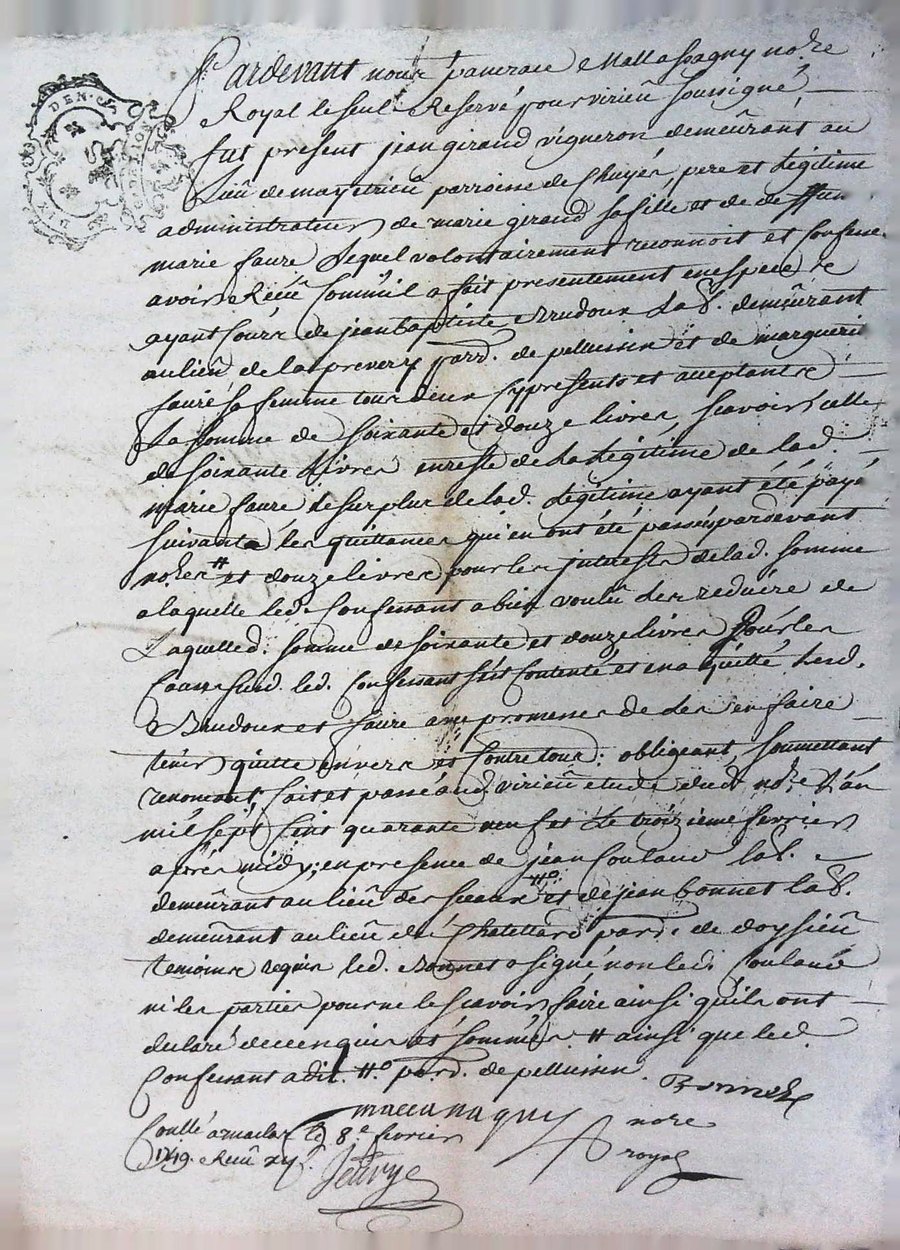 DEN. DE LION
Pardevant nous pancrace Mallassagny no.re
Royal le seul Reservé pour virieu soussigné
fut present jean girand vigneron demeûrant au
Lieû de maytrieû parroisse de Chuyer, pere et legitime
administrateur de marie girand sa fille et de deffun
marie faure lequel volontairement reconnoit et confesse
avoir Receû Comm'il a fait presentement en espece
ayant Cours de jean baptiste Baudoux La.b. demeûrant
au lieû de la prevery parr. de pellussin et de marguerit
faure sa femme tous deux Cy presents et acceptants
La somme de soixante et douze livres, scavoir celle
de soixante Livres en reste de La Légitime de lad.
marie faure le surplus de lad. Légitime ayant été payé
suivant les quittances qui en ont été passéés pardevant
no.res # et douze livres pour les jnterests de lad. somme
a laquelle led. Confessant a bien voulû les reduire de
Laquelled. somme de soixante et douze livres pour les
Causes susd. led. Confessant s'est Contenté et en a quitté lesd.
Baudoux et faure avec promesses de les en faire
tenir quitte envers et Contre tous; obligeant, soumettant
renonçant, fait et passé aud. virieû etude dud. no.re L'an
mil sept Cent quarante neuf et Le troizieme fevrier
après midy; en presence de jean Coulaud la.b.
demeûrant au lieû des sceaux #o et de jean bonnet la.b.
demeûrant au lieû du Chatellard parr. de doysieû
temoins requis led. Bonnet a signé non led. Coulaud
ni les parties pour ne le scavoir faire ainsi qu'ils ont
declaré de ce enquis et sommés # ainsi que led.
Confessant a dit. #o parr. de pellussin.
Bonnet
nore
royal
Con.llé a maclas le 8.e fevrier
1749. Receu